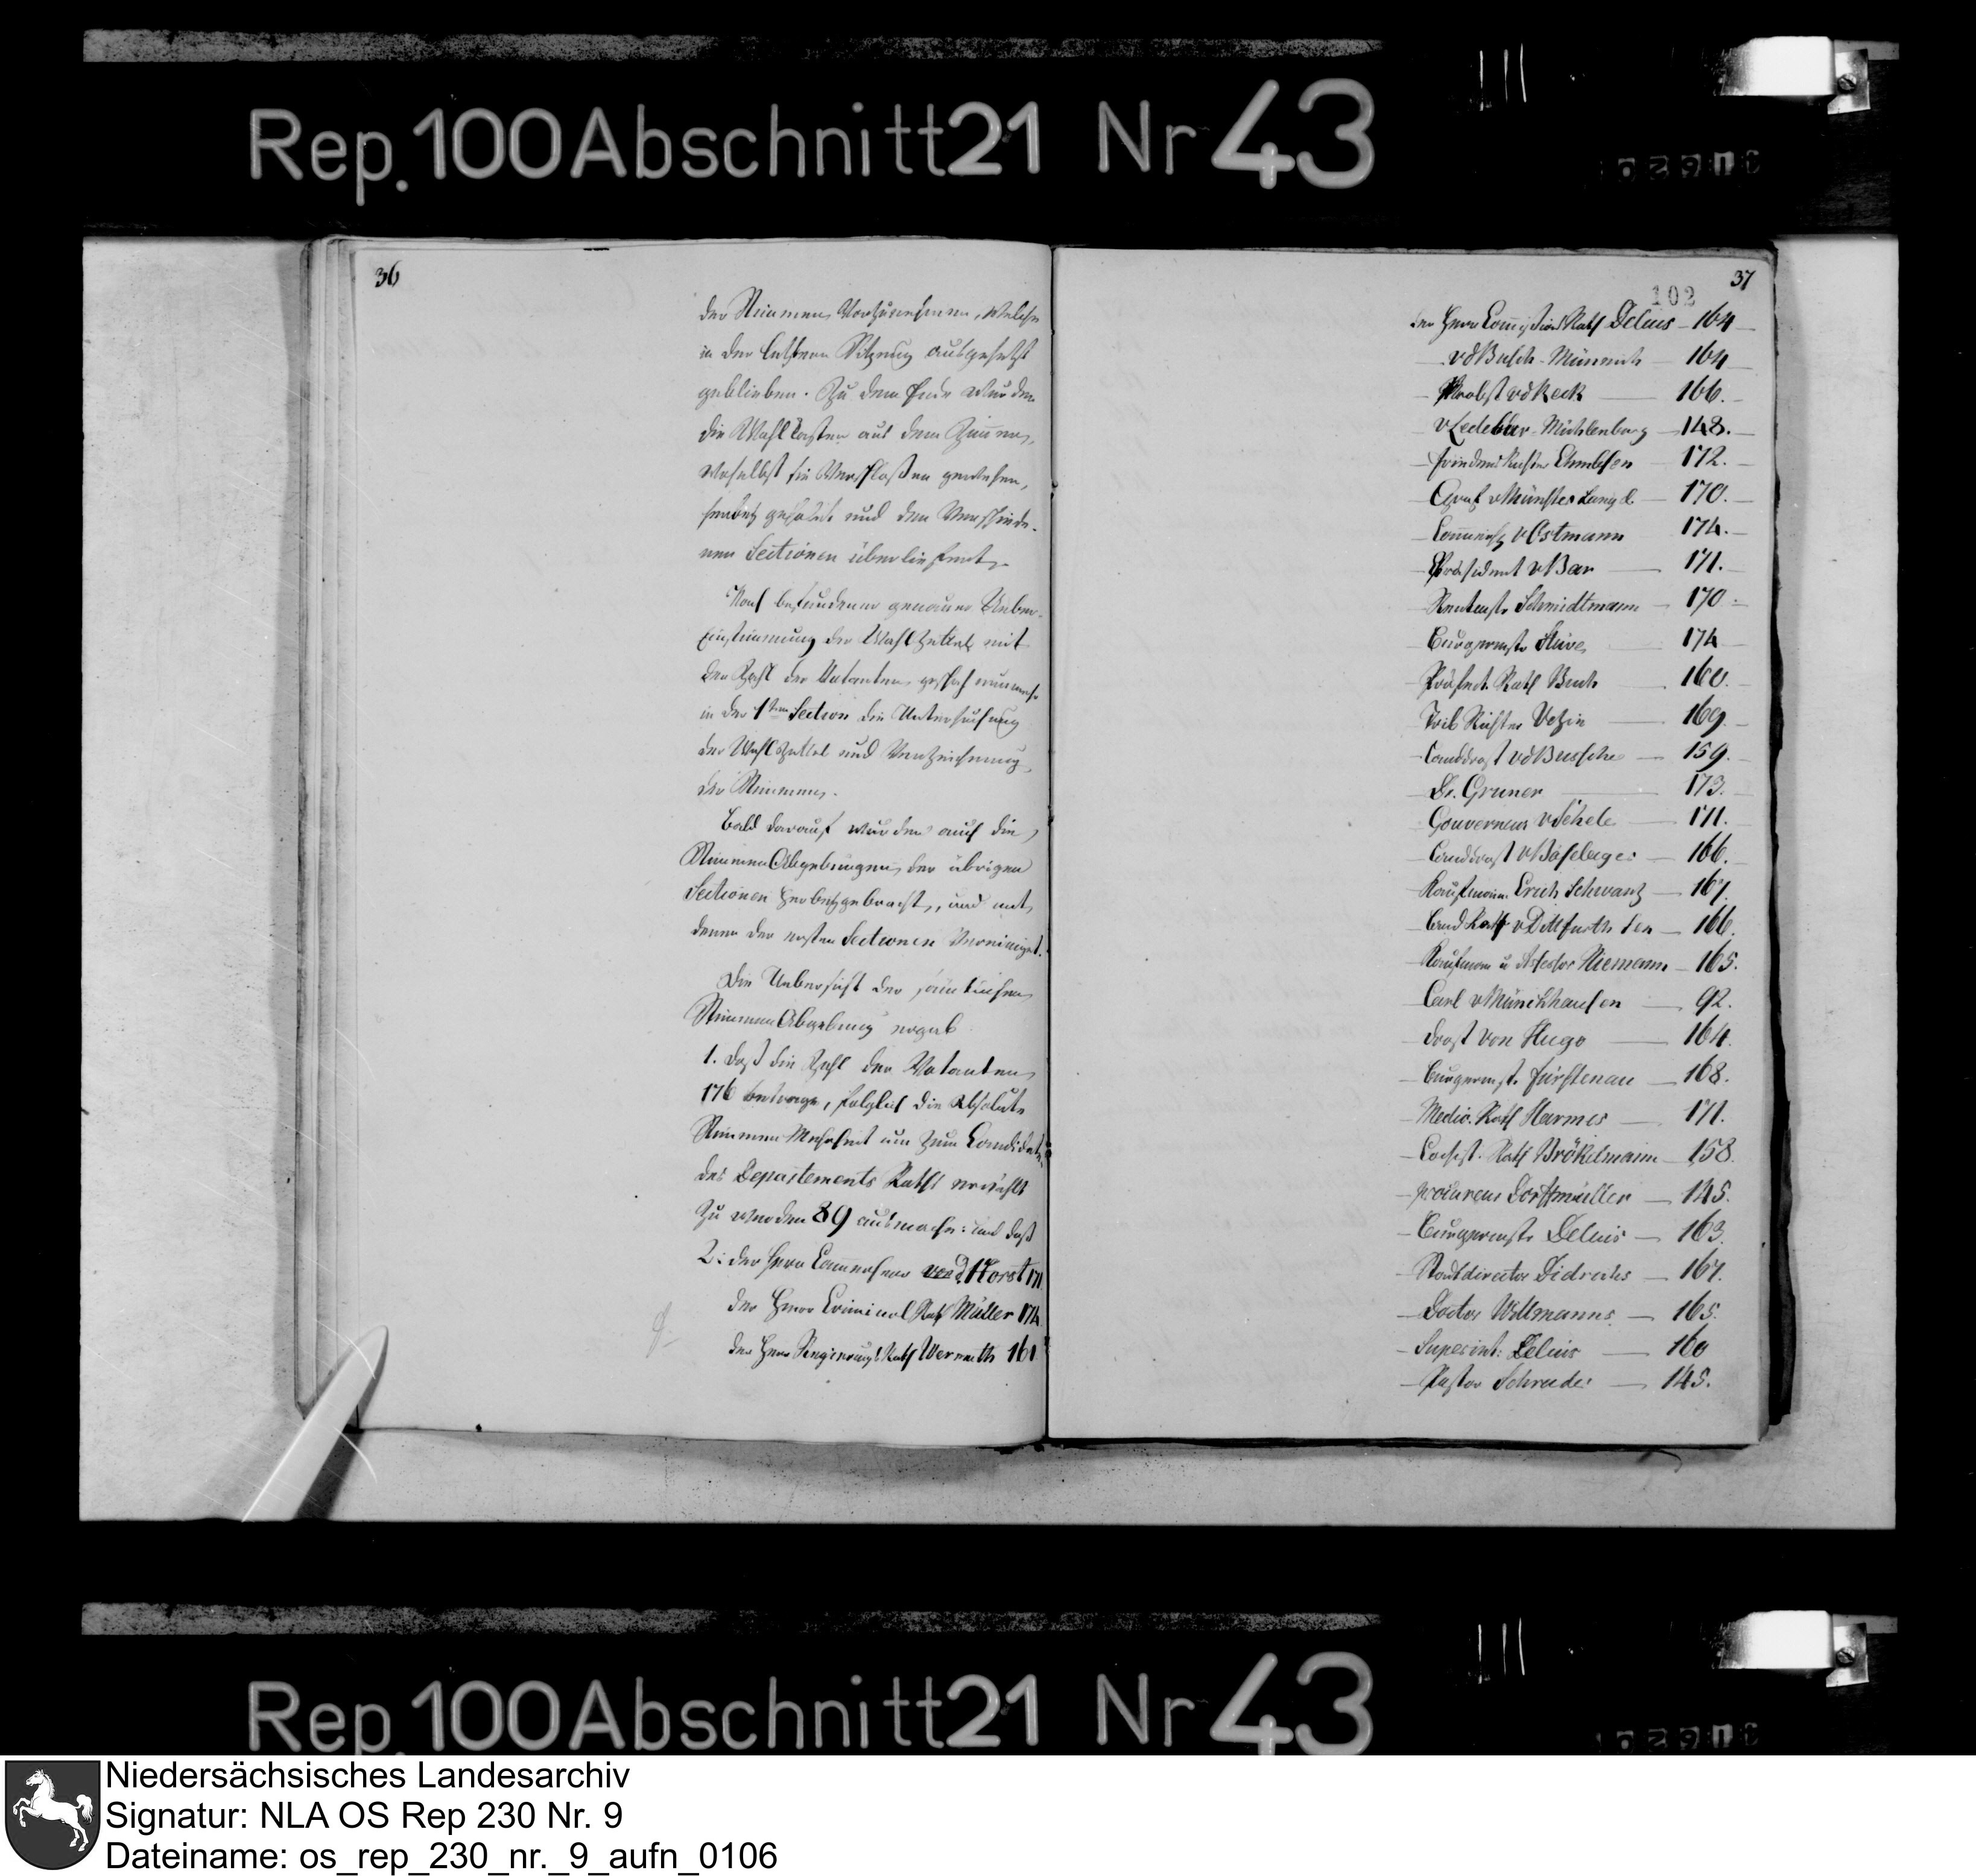 Rep. 100 Abschnitt 21 Nr 43
36
der Stimmen vorzunehmen, welche
in der letztern Sitzung ausgesetzt
geblieben. Zu dem Ende wurden
die Wahlkasten aus dem Zimmer,
woselbst sie verschloßen gewesen,
herbey geholt und den verschiede-
nen Sectionen überliefert.
Nach befundener genauer Ueber-
einstimmung der Wahlzettel mit
der Zahl der Votanten geschah nunmehr
in der 1ten Section die Untersuchung
der Wahlzettel und Verzeichnung
der Stimmen.
Bald darauf wurden auch die
Stimmen Abgebungen der übrigen
Sectionen herbeygebracht, und mit
denen der ersten Sectionen vereiniget.
Die Uebersicht der sämtlichen
Stimmen Abgebung ergab
1. daß die Zahl der Votanten
176 betrage, folglich die absolute
Stimmen Mehrheit um zum Candidaten
des Departements Raths erwählt
zu werden 89 ausmache: und daß
2: der Herr Cammerherr von d Horst 171
der Herr Criminal Rath Müller 174
der Herr Regierungs Rath Wernuth 161
37
102
der Herr Commission Rath Delius - 164
- vdBusch-Münnich - 164
- Probst vdReck - 166.
- vLedebur-Mühlenburg - 148.
- Friedens Richter Ehmbsen - 172.
- Graf vMünster Langel. - 170.
- vOstmann - 174.
- Präsident vBar - 171.
- Rentmstr Schmidtmann - 170
- Burgermstr Stüve - 174
- Präfect. Rath Buch - 160.
- Trib Richter Vezin - 169.
- Landdrost vdBussche - 159.
- Dr. Gruner - 173.
- Gouverneur vSchele - 171.
- Landdrost vBöselager - 166.
- Kaufmann Erich Schwartz - 167.
- Land Rath vDittfurth sen - 166.
- Kaufmann u Assessor Niemann - 165.
- Carl vMünchhausen - 92.
- Drost von Hugo - 164.
- Burgermstr. Fürstenau - 168.
- Medic. Rath Harmes - 171.
- Consist. Rath Brökelmann - 158.
- procureur Dorffmüller - 145.
- Burgermstr Delius - 163.
- Stadtdirector Didrichs - 167.
- Doctor Willmanns - 165.
- Superint: Delius - 160
- Pastor Schrader - 145.
Rep. 100 Abschnitt 21 Nr 43
Niedersächsisches Landesarchiv
Signatur: NLA OS Rep 230 Nr. 9
Dateiname: os_rep_230_nr._9_aufn_0106